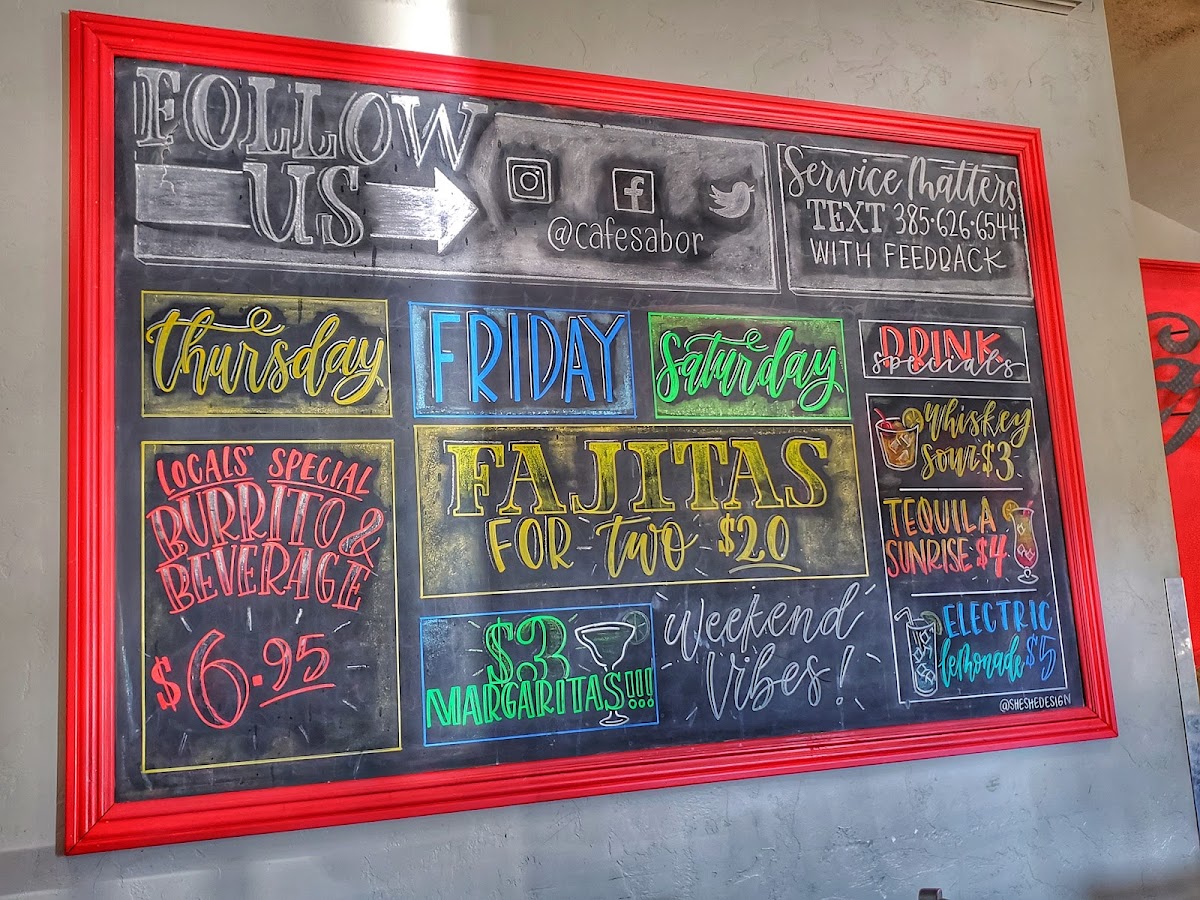 FOLLOW
US
@cafesabor
Service Matters
TEXT 385·626·6544
WITH FEEDBACK
Thursday
LOCALS' SPECIAL
BURRITO &
BEVERAGE
$6.95
FRIDAY
Saturday
FAJITAS
FOR two $20
$3
MARGARITAS!!!
Weekend
Vibes!
DRINK
specials
Whiskey
sour $3
TEQUILA
SUNRISE $4
ELECTRIC
lemonade $5
@SHESHEDESIGN